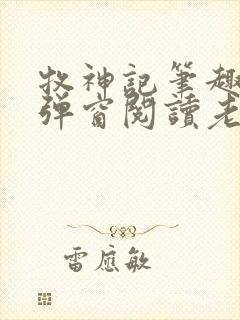 牧神記筆趣
彈窗閱讀老
雷應敏